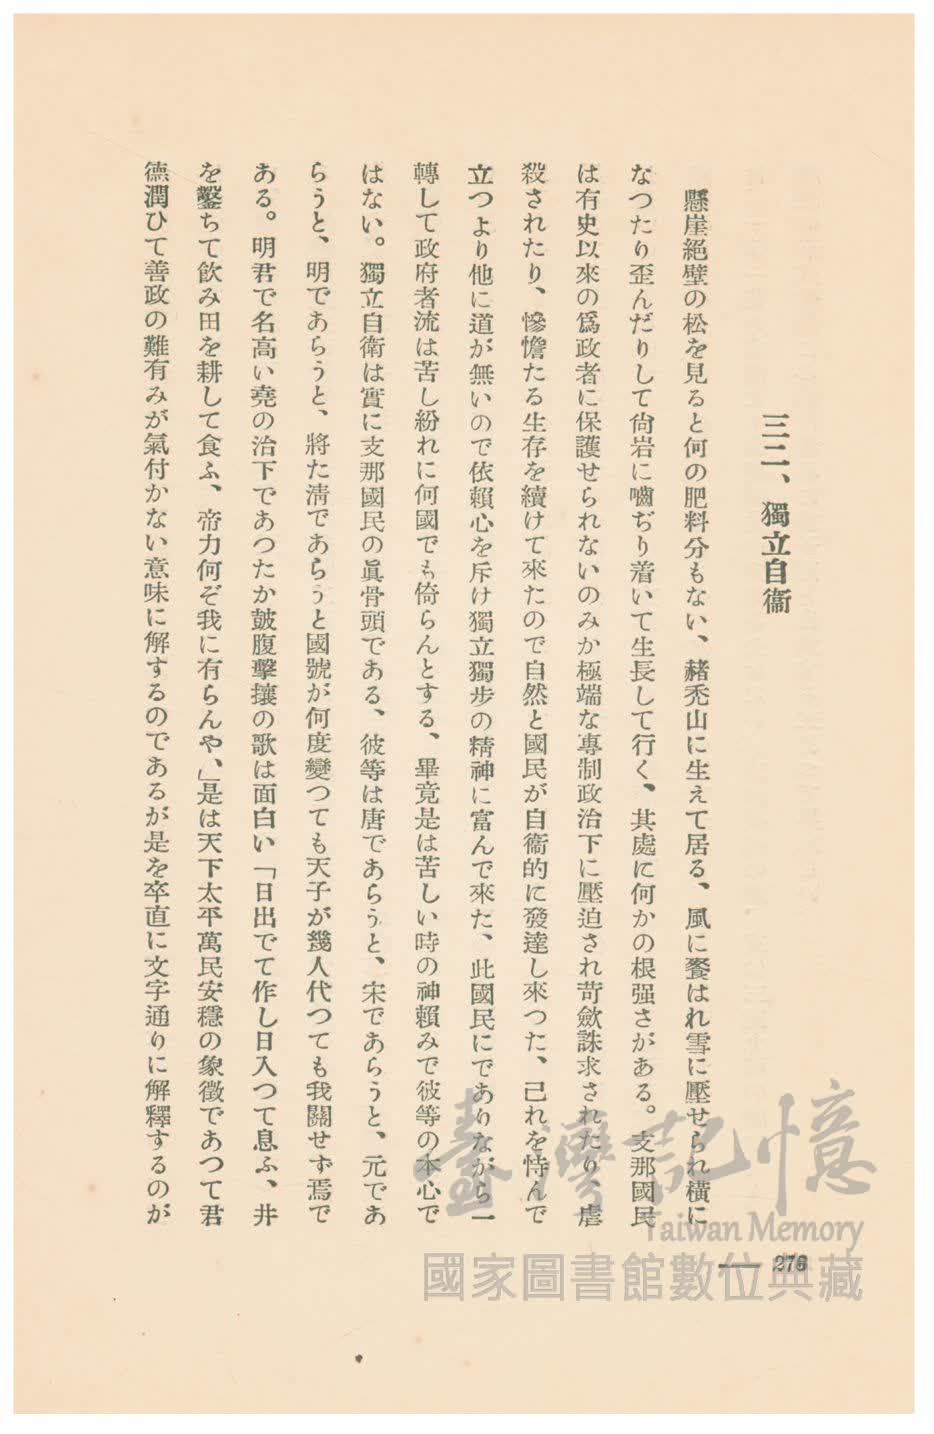 三二、獨立自衞
懸崖絕壁の松を見ると何の肥料分もない、赭禿山に生えて居る、風に餐はれ雪に壓せられ橫に
なつたり歪んだりして尙岩に嚙ぢり着いて生長して行く、其處に何かの根强さがある。支那國民
は有史以來の爲政者に保護せられないのみか極端な專制政治下に壓迫され苛斂誅求されたり、虐
殺されたり、慘憺たる生存を續けて來たので自然と國民が自衞的に發達し來つた、己れを恃んで
立つより他に道が無いので依賴心を斥け獨立獨步の精神に富んで來た、此國民にでありながら一
轉して政府者流は苦し紛れに何國でも倚らんとする、畢竟是は苦しい時の神賴みで彼等の本心で
はない。獨立自衞は實に支那國民の眞骨頭である、彼等は唐であらうと、宋であらうと、元であ
らうと、明であらうと、將た淸であらうと國號が何度變つても天子が幾人代つても我關せず焉で
ある。明君で名高い堯の治下であつたか皷腹擊攘の歌は面白い「日出でて作し日入つて息ふ、井
を鑿ちて飮み田を耕して食ふ、帝力何ぞ我に有らんや、」是は天下太平萬民安穩の象徵であつて君
德潤ひて善政の難有みが氣付かない意味に解するのであるが是を卒直に文字通りに解釋するのが
276
臺灣記憶
Taiwan Memory
國家圖書館數位典藏